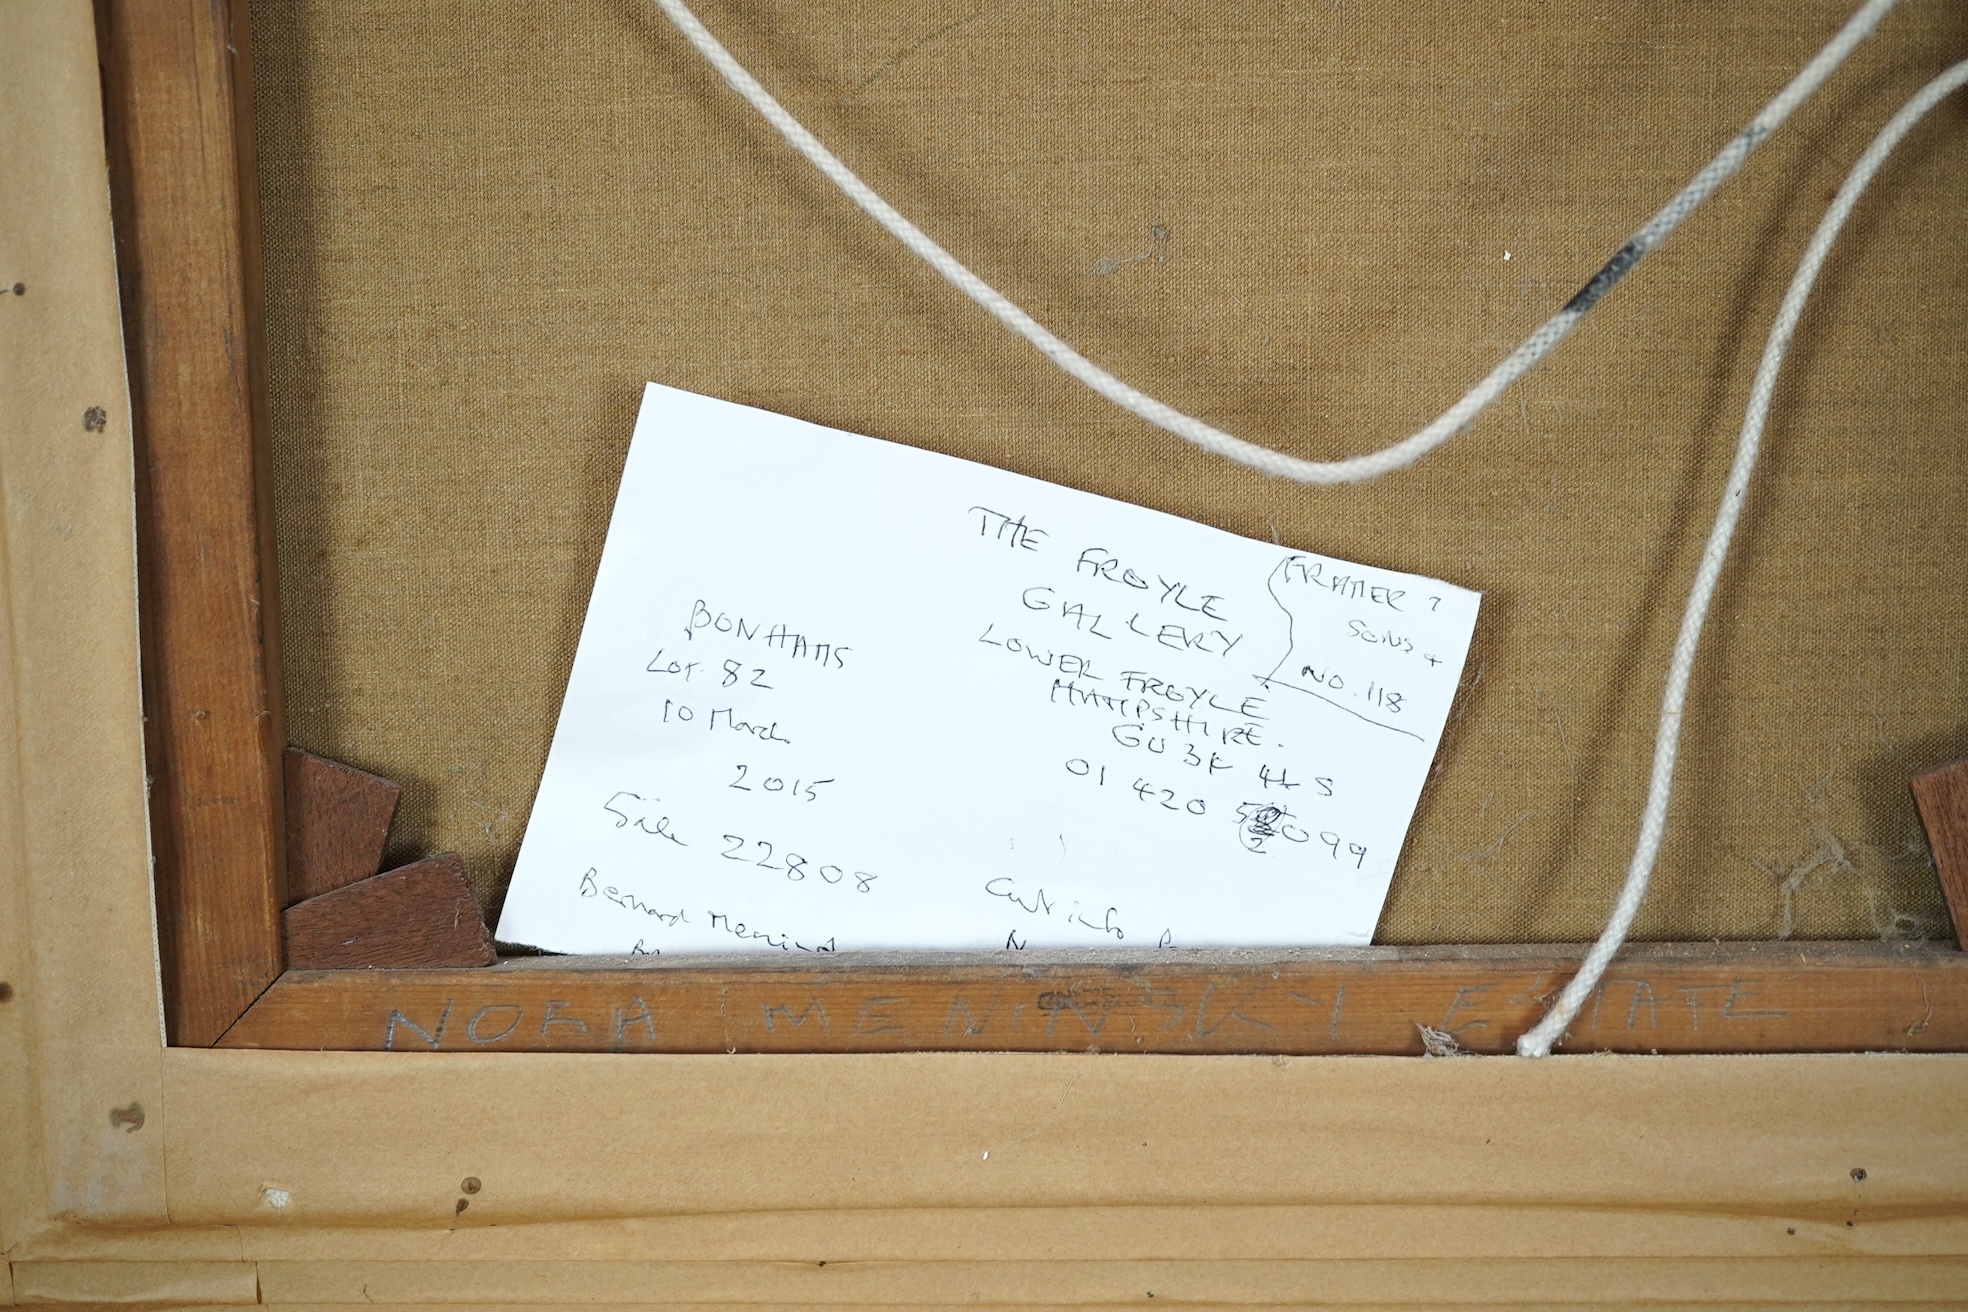 BONHAMS
Lot. 82
10 March
2015
Sale 22808
Bernard Meninsk
THE FROYLE
GALLERY
LOWER FROYLE
HAMPSHIRE.
GU34 4LS
01 420 52099
FRAMER ?
SONS &
NO. 118
NORA MENINSKY ESTATE